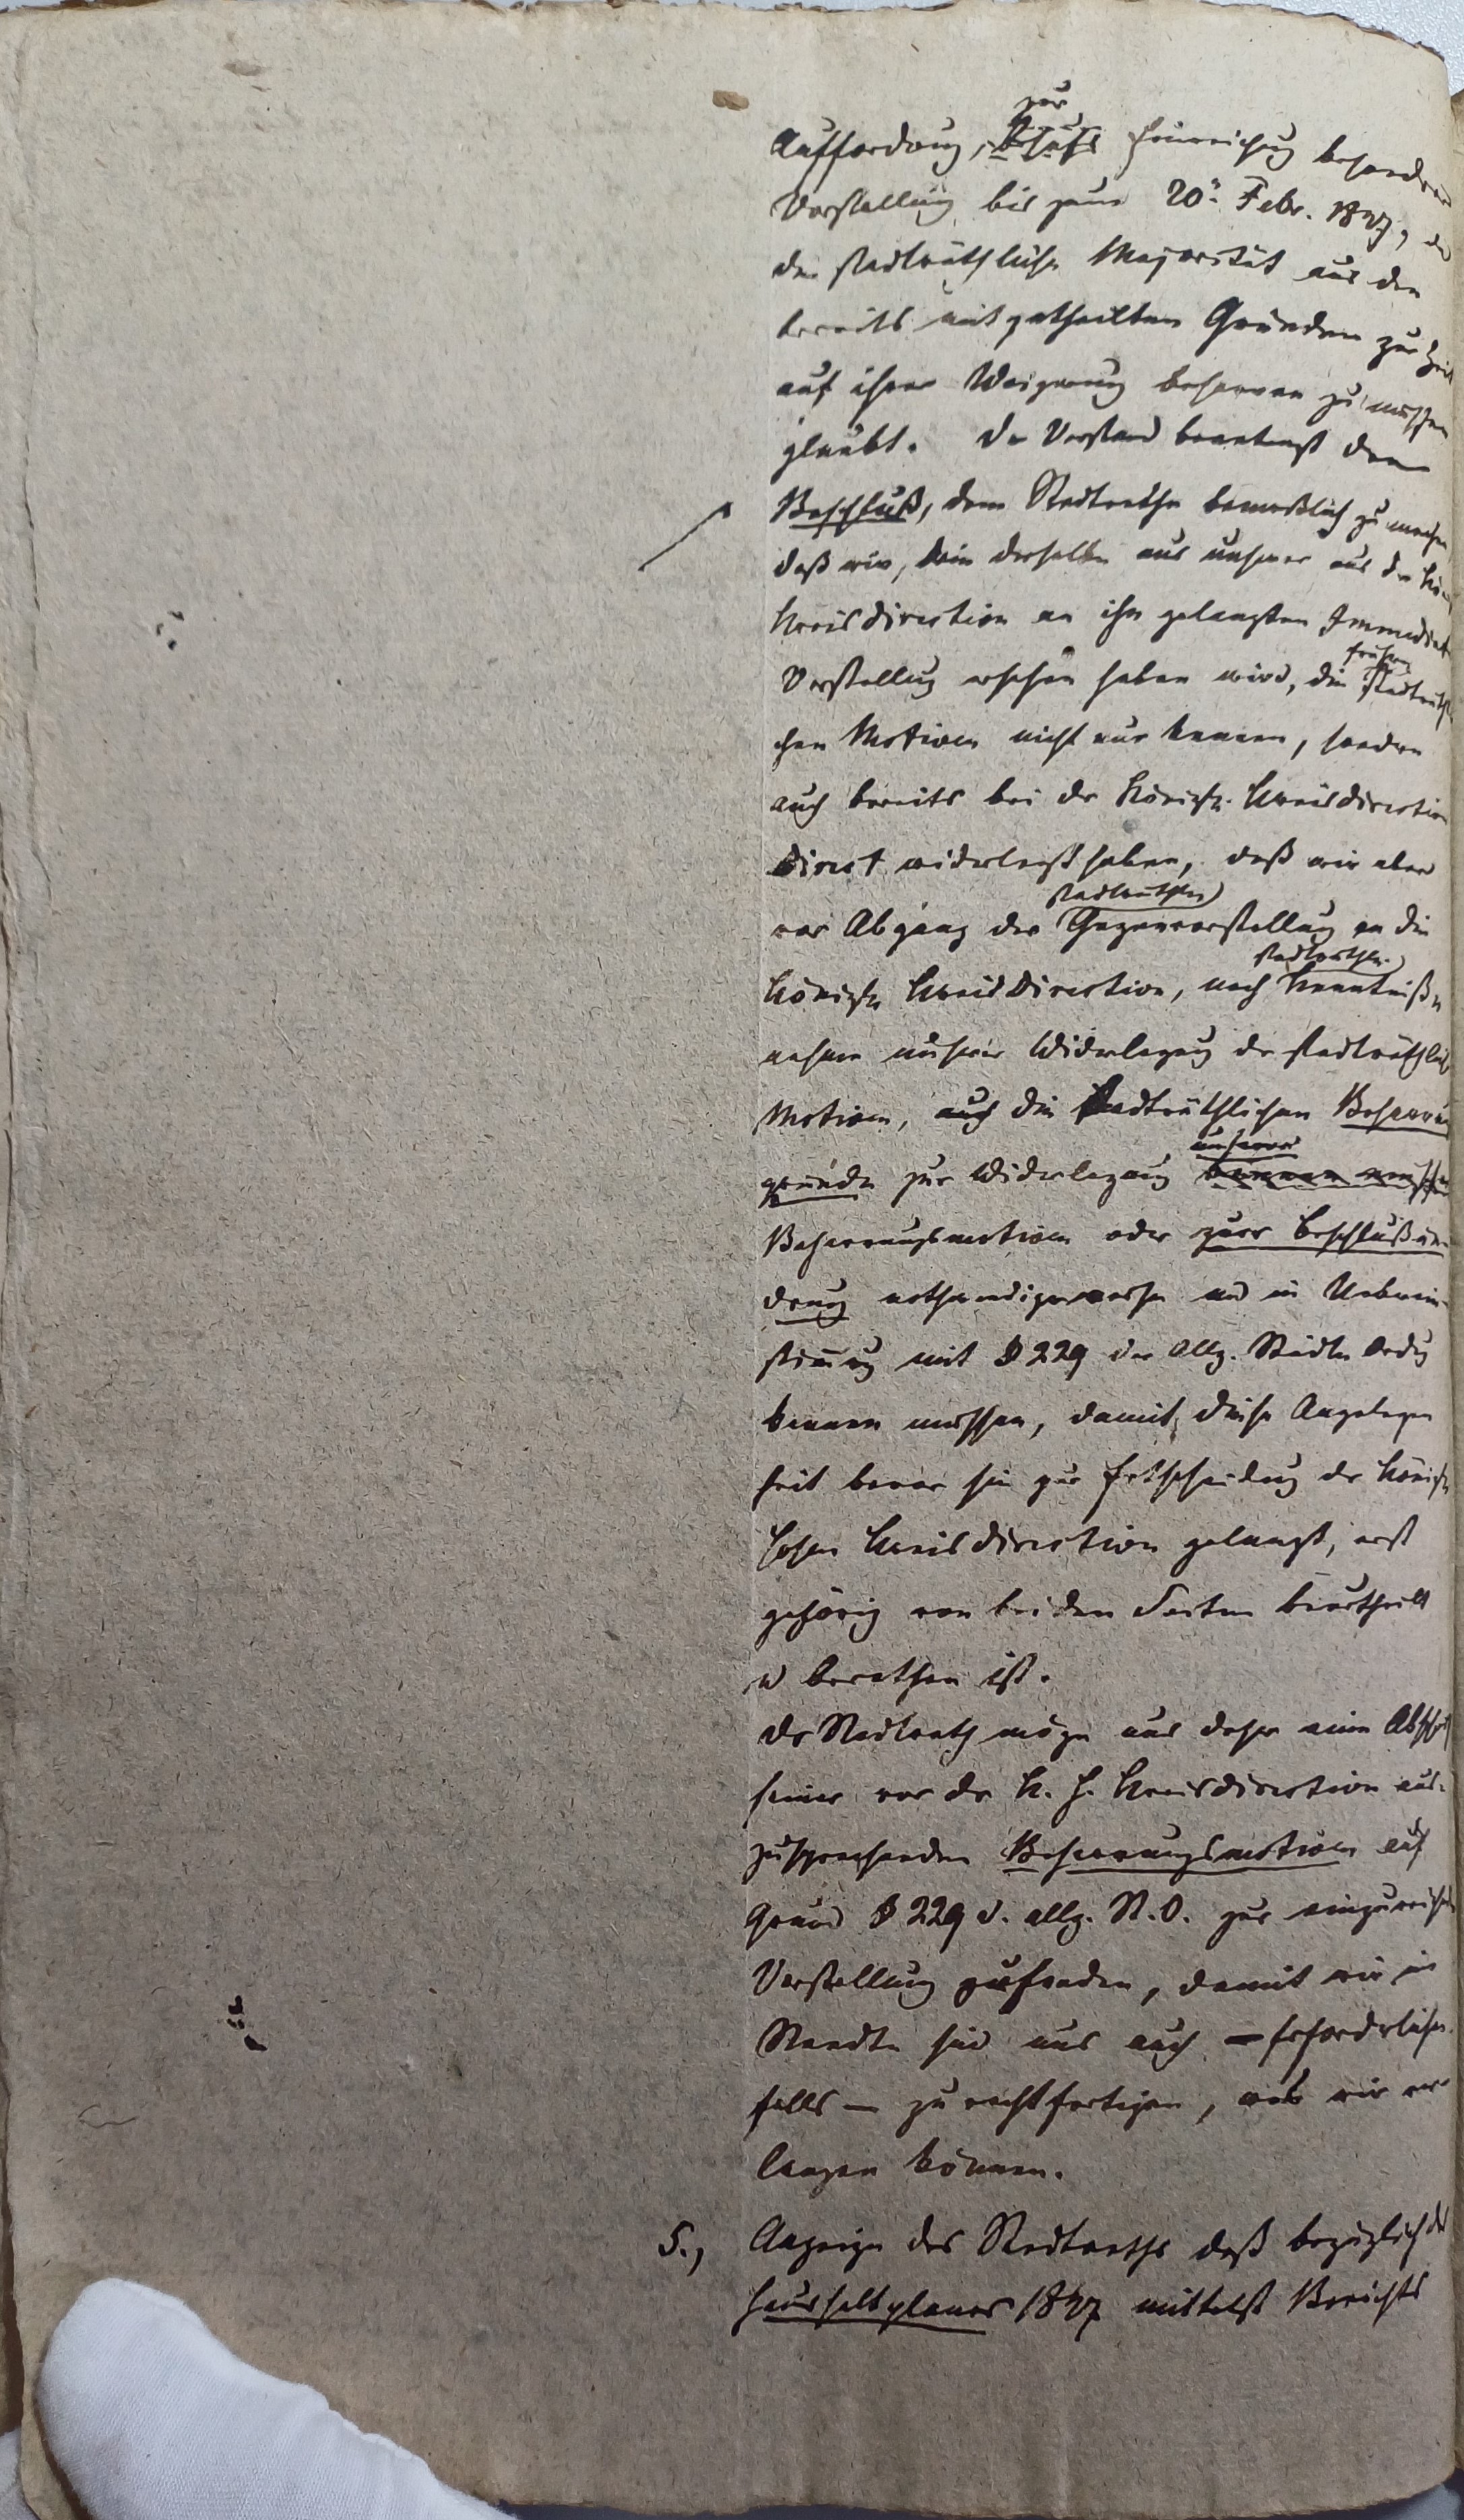 zur
Aufforderung, behufs Einreichung besonderer
Vorstellung bis zum 20n. Febr. 1847, da
die stadträthliche Majorität aus den
bereits mitgetheilten Gründen zur Zeit
auf ihrer Weigerung beharren zu müssen
glaubt. Der Vorstand beantragt den
Beschluß, dem Stadtrathe bemerklich zu machen
daß wir, wie derselbe aus unserer aus der Kön.
Kreisdirection an ihn gelangten Immediat
frühern
Vorstellung ersehen haben wird, die stadträthli
chen Motiven nicht nur kennen, sondern
auch bereits bei der Königl. Kreisdirection
direct widerlegt haben, daß wir aber
stadträthln
vor Abgang der Gegenvorstellung an die
stadträthl.
Königl. Kreisdirection, nach Kenntniß
nahme unserer Widerlegung der stadträthlich
Motiven, auch die stadträthlichen Beharrungs
unserer
gründe zur Widerlegung kennen müssen
Beharrungsmotiven oder zur Beschlußän
derung nothwendigerweise und in Ueberein
stimmung mit § 229 der Allg. Städte Ordng
kennen müssen, damit diese Angelegen
heit bevor sie zur Entscheidung der Königl
hohen Kreisdirection gelangt, erst
gehörig von beiden Seiten beurtheilt
u berathen ist.
Der Stadtrath möge uns daher eine Abschrift
seiner vor der K. H. Kreisdirection aus-
zusprechenden Beharrungsmotiven auf
Grund § 229 d. allg. St. O. zur einzureichenden
Vorstellung zusenden, damit wir im
Stande sind uns auch – erforderlichen
falls – zu rechtfertigen, was wir ver
langen können.
5., Anzeige des Stadtraths daß bezüglich des
Haushaltplanes 1847 mittelst Berichts